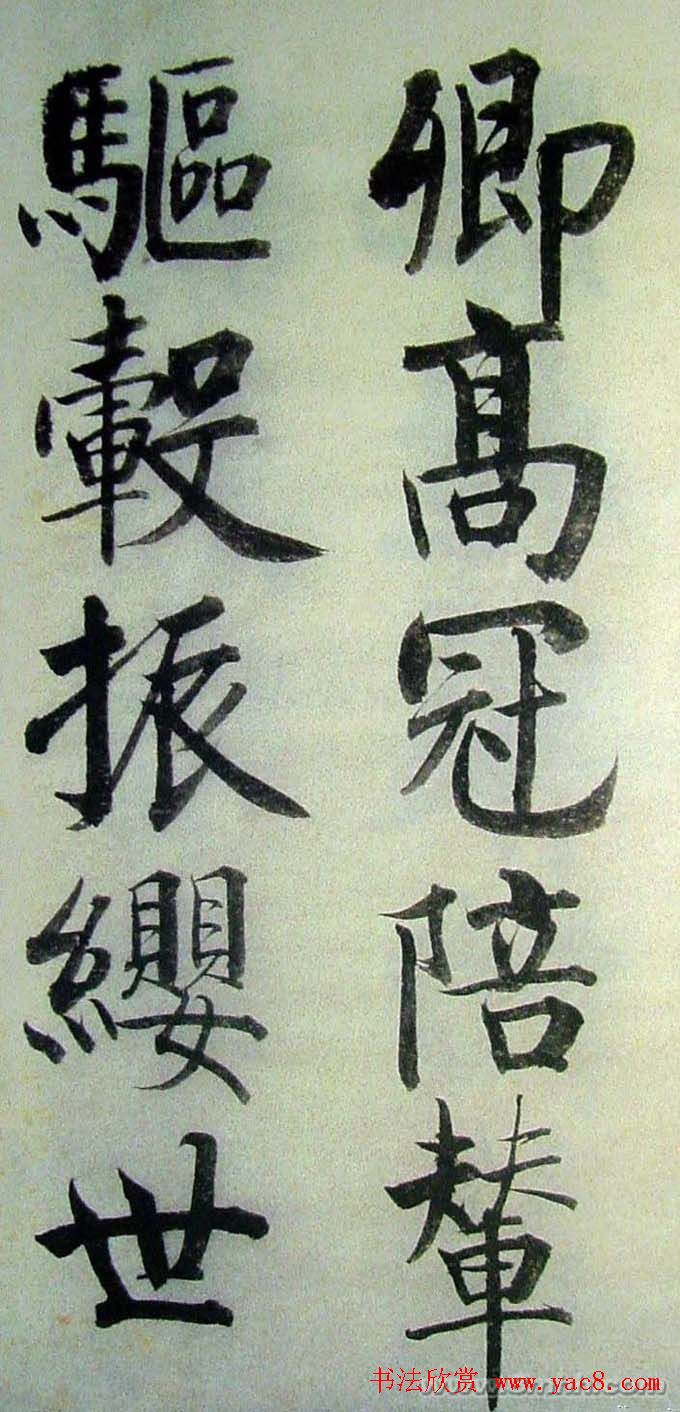 卿高冠陪輦
驅轂振纓世
书法欣赏 www.yac8.com